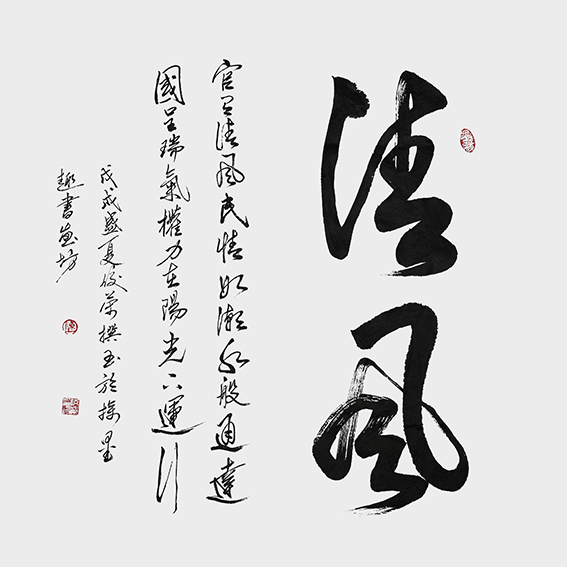 清风
官呈清风民情如潮水般通達
國呈瑞氣權力在陽光下運行
戊戌盛夏俊荣撰書於掾墨
趣書畫坊